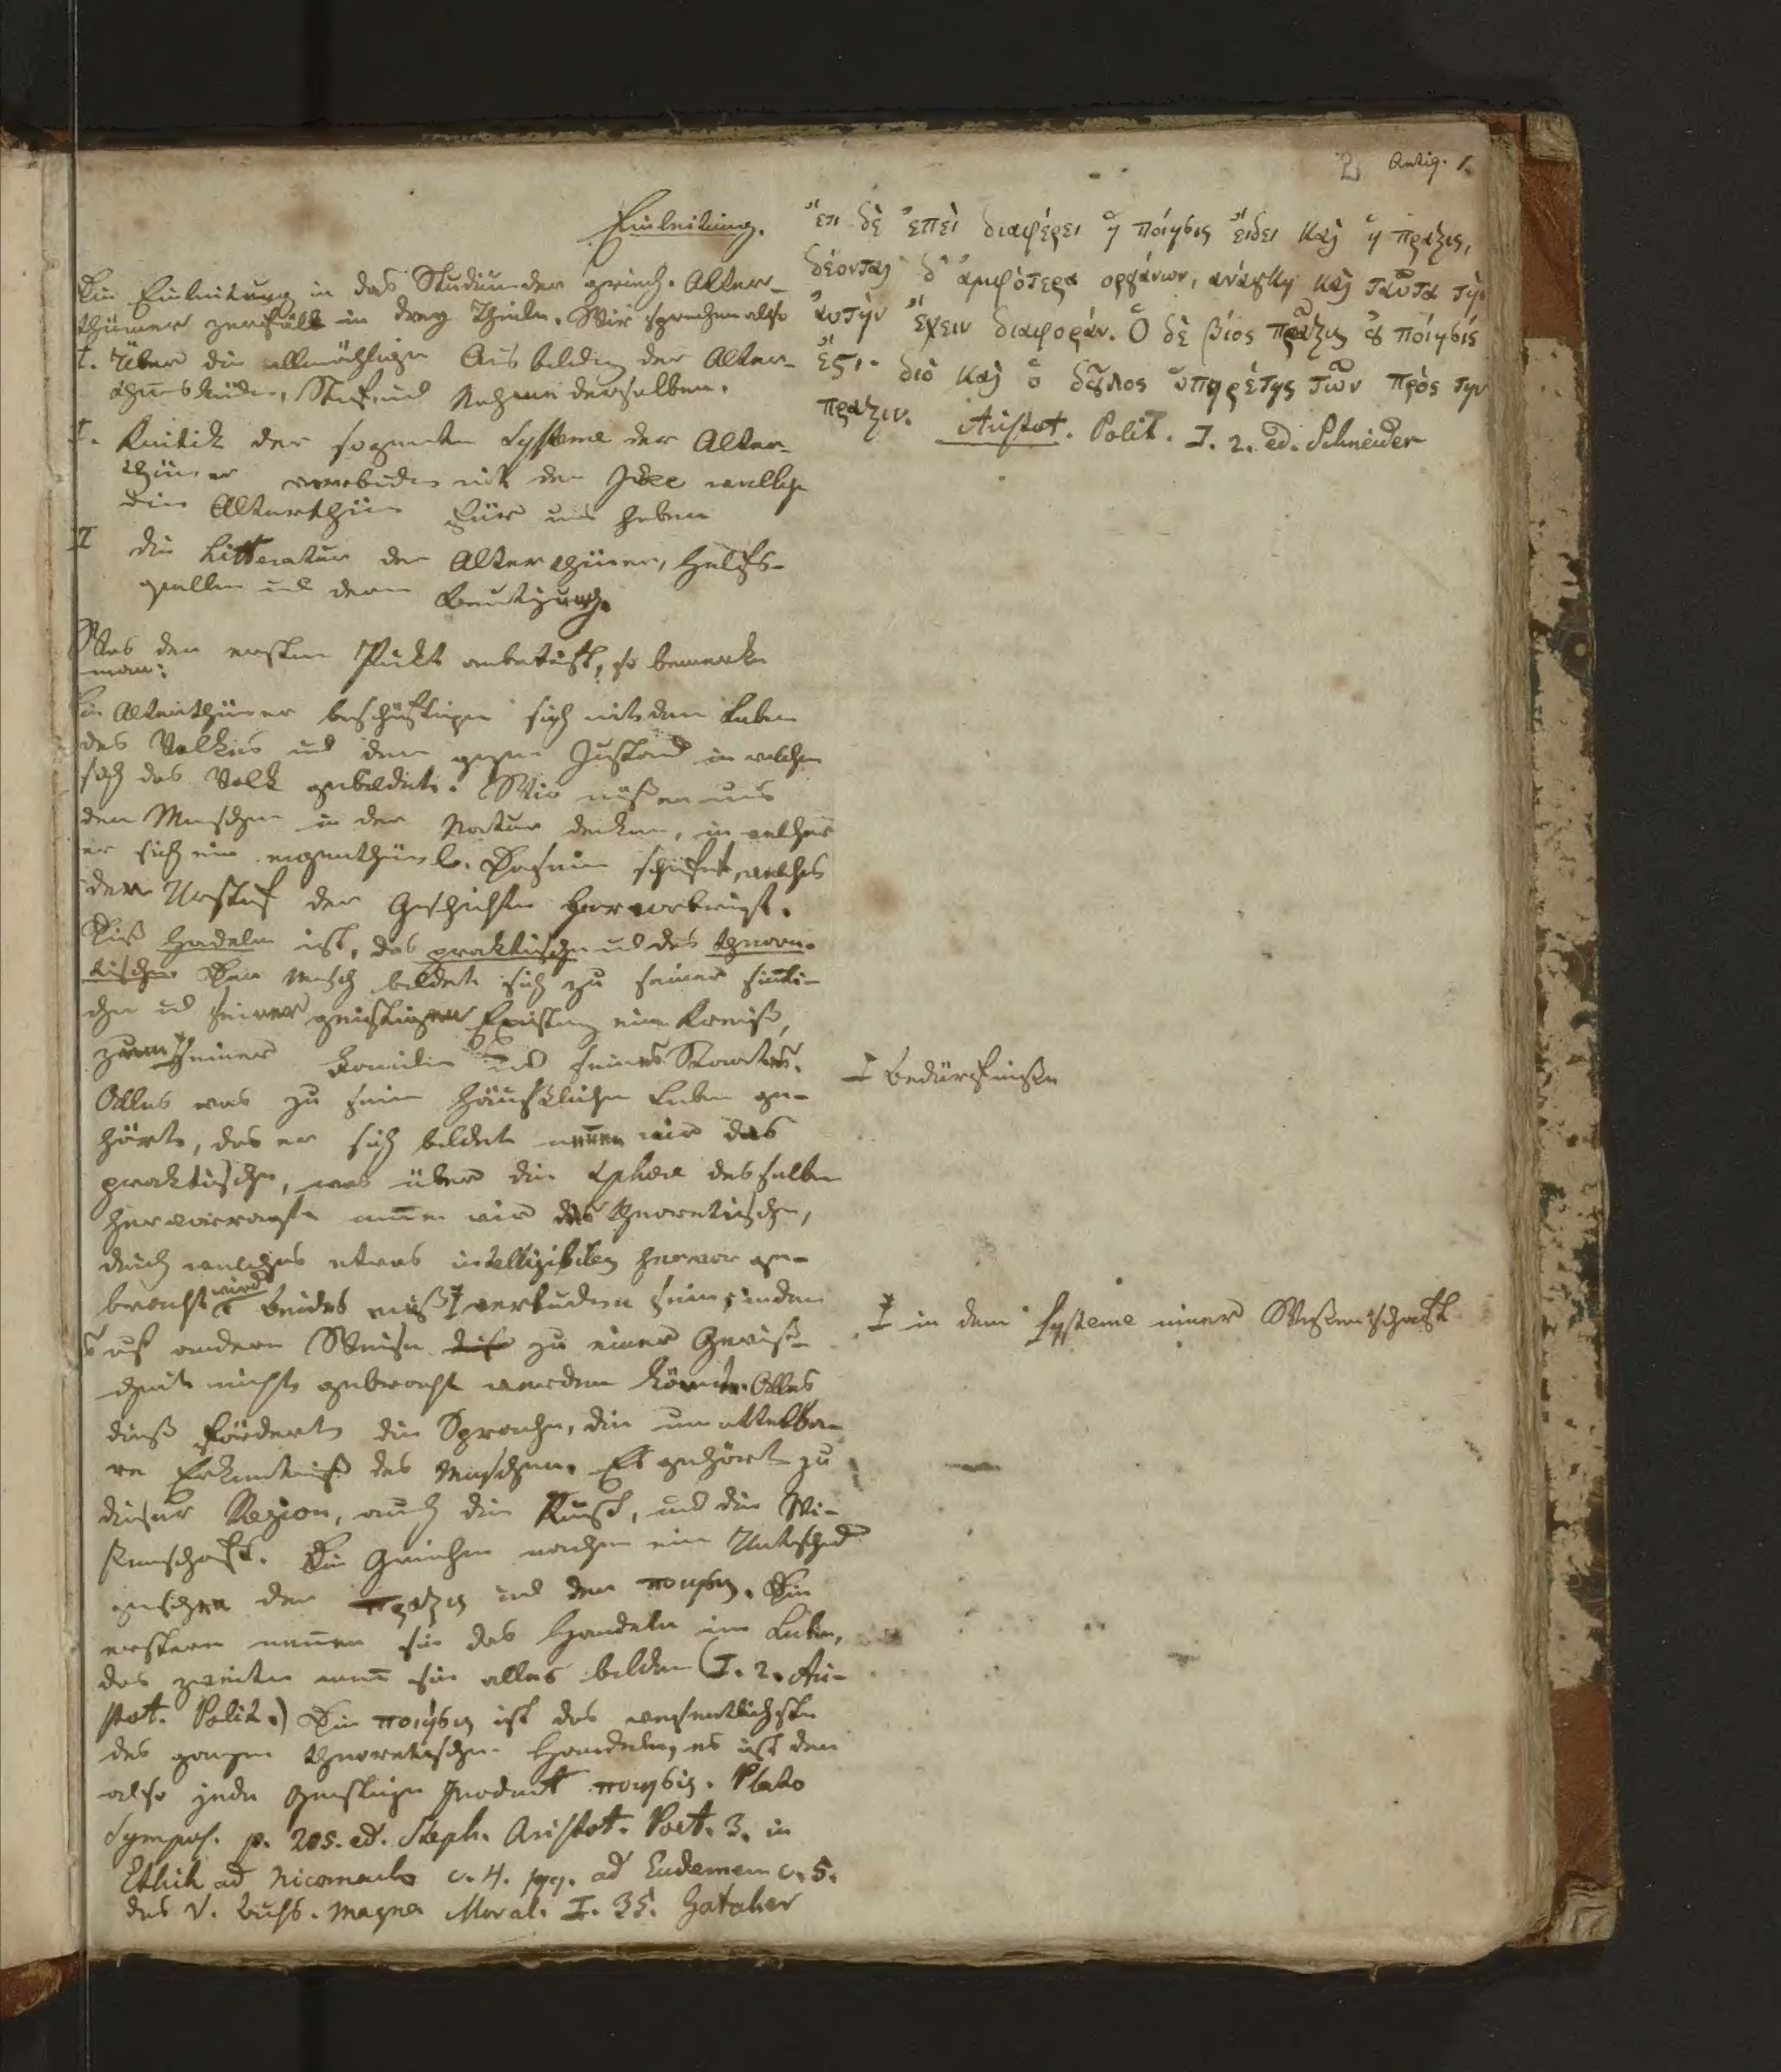 2 Antiq. 1.
Einleitung.
Die Einleitung in das Studium der griech. Alter-
thümer zerfällt in drey Theile. Wir sprechen also
I. Über die allmählige Ausbildg der Alter-
thumskunde, Stoff und Nahme derselben.
I. Kritik der sogenanten Systeme der Alter-
thümer verbunden mit der Idee welche
die Alterthümer für uns haben
I die Litteratur der Alterthümer, Hülfs-
quellen und deren Benutzung.
Was den ersten Punkt anbetrifft, so bemerke
man:
Die Alterthümer beschäftigen sich mit dem Leben
des Volkes und dem ganzen Zustand in welchem
sich das Volk gebildet. Wir müßen uns
den Menschen in der Natur denken, in welcher
er sich ein eigenthüml. Daseyn schaffet, welches
den Urstoff der Geschichte hervorbringt.
Diß Handeln ist, das praktische und das theore-
tische. Der Mensch bildet sich zu seiner sinnli-
chen und seiner geistigen Existenz einen Kreiß,
zum seiner Familie und seines Staates.
Alles was zu seinem häußlichen Leben ge-
hört, das er sich bildet nennen wir das
praktische, was über die Sphäre desselben
hervorragt nennen wir das theoretische,
durch welches etwas intelligibles hervor ge-
bracht wird. Beides muß verbunden sein, indem
es auf andere Weise zu einer Gewiß-
heit nicht gebracht werden könnte. Alles
dieß fördert die Sprache, die unmittelba-
re Erkenntniß des Menschen. Es gehört zu
dieser Region, auch die Kunst, und die Wi-
ßenschaft. Die Griechen machen ein Unterschied
zwischen der πραξις und der ποιησις. Die
erstere nennen sie das Handeln im Leben,
das zweite nenn sie alles bilden (I. 2. Ari-
stot. Polit.) Die ποιησις ist das wesentlichste
des ganzen theoretischen Handelns, es ist den
also jede geistige Product ποιησις. Plato
Sympos. p. 205. ed. Steph. Aristot. Poet. 3. in
Ethik ad Nicomacho c. 4. sqq. ad Eudemem c. 5.
des V. Buchs. Magna Moral. I. 35. Gataker
ἔτι δὲ ἐπεὶ διαφέρει ἡ ποίησις εἴδει καὶ ἡ πραξις,
δέονται δ' ἀμφότερα οργάνων, ανάγκη καὶ ταῦτα τὴν
ἀυτὴν ἔχειν διαφοράν. Ὁ δὲ βίος πρᾶξις ȣ ποίησίς
ἔϛι· διὸ καὶ ὁ δοῦλος ὑπηρέτης τῶν πρὸς την
πραξιν. Aristot. Polit. I. 2. ed. Schneider
I Bedürfniße
I in dem Systeme einer Wißenschaft